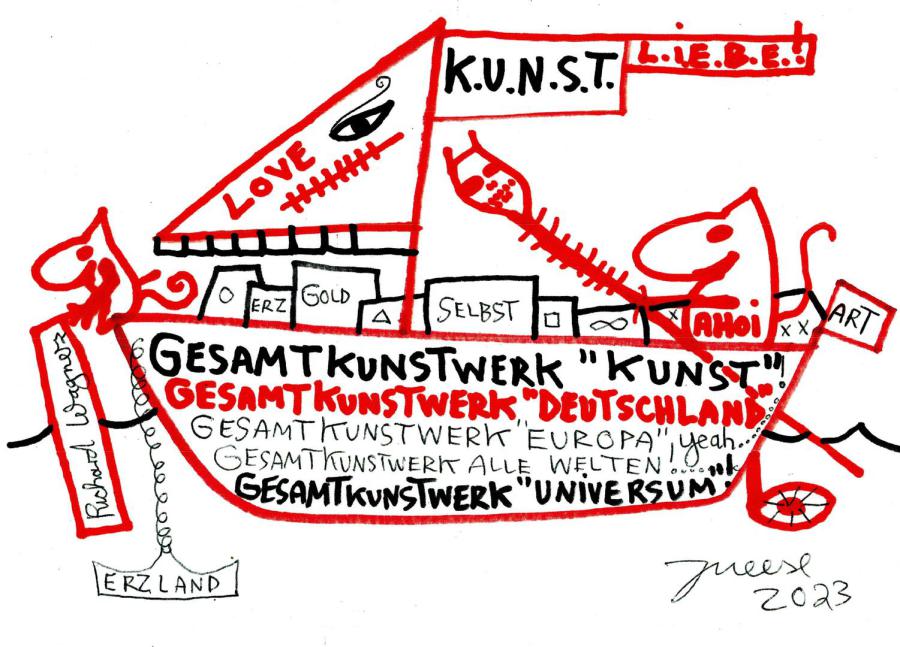 K.U.N.S.T.
L.i.E.B.E.!
LOVE
ERZ
GOLD
SELBST
AHOi
ART
Richard Wagnerz
GESAMTKUNSTWERK "KUNST"!
GESAMTKUNSTWERK "DEUTSCHLAND"
GESAMTKUNSTWERK "EUROPA", yeah....
GESAMTKUNSTWERK ALLE WELTEN!....
GESAMTKUNSTWERK "UNIVERSUM"!
ERZLAND
JMeese
2023